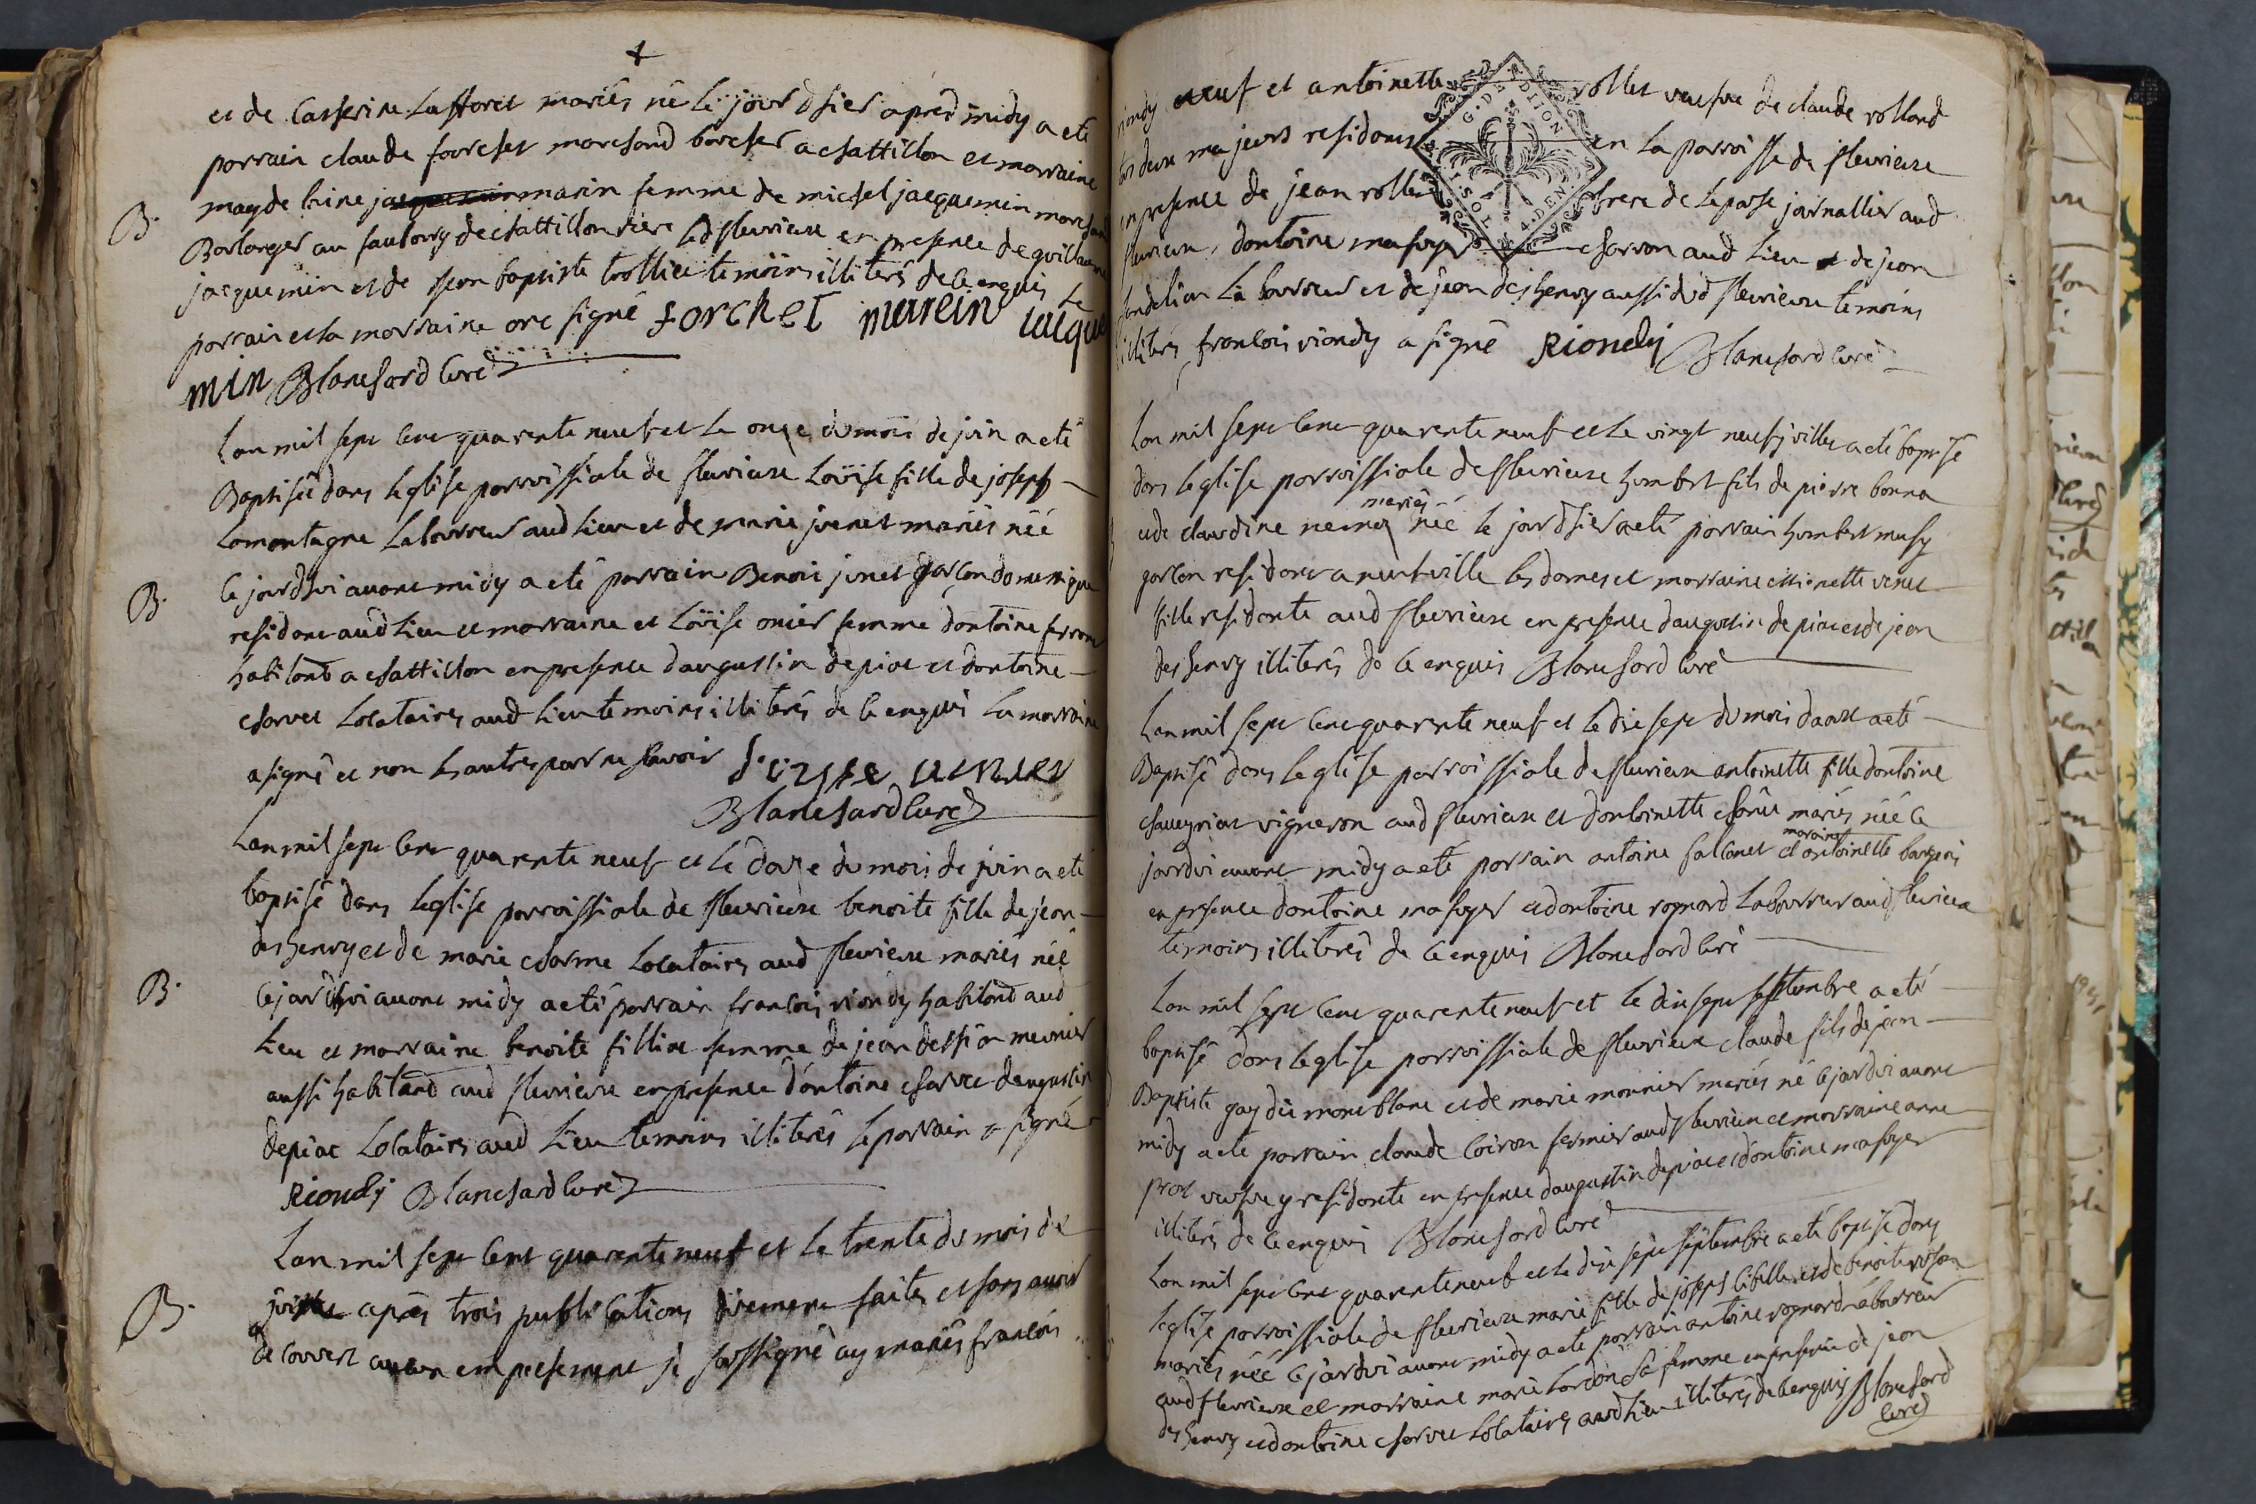 et de Catherine Lafforet mariés né le jour d'hier apred midy a eté
parrain claude forchet marchand borcher a chattillon et marraine
magdelaine marin femme de michel jacquemin marchand
B.
Bolanger au faubourg de chattillon riere led fleurieux en presence de guillaume
jacquemin et de jean baptiste trollier temoins illiterés de ce enquis le
parrain et la marraine ont signé forchet marein jacque
min Blanchard curé
Lan mil sept cent quarente neuf et le onze du mois de juin a eté
Baptisée dans leglise parroissiale de fleurieux Loüise fille de joseph
Lamontagne Laboureur aud lieu et de marie junet mariés néé
B.
ce jourdhui avant midy a eté parrain Benoit junet garcon domestique
resident aud lieu et marraine et Loüise onier femme dantoine
habitant a chattillon en presence daugustin depiat et dantoine
charvet Locataires aud lieu temoins illiterés de ce enquis La marraine
a signé et non les autres pour ne scavoir
Blanchard curé
Lan mil sept cent quarente neuf et le doze du mois de juin a eté
baptisé dans leglise parroissiale de fleurieux benoite fille de jean
deshenry et de marie charme Locataires aud fleurieux mariés néé
B.
cejourdhui avant midy a eté parrain francois riondy habitant aud
lieu et marraine benoite femme de jean meunier
aussi habitand aud fleurieux en presence d'antoine charvet daugustin
depiat Locataires aud lieu temoins illiterés le parrain a signé
Riondy Blanchard curé
Lan mil sept cent quarente neuf et le trente du mois de
B.
apres trois publications faites et sans avoir
decouvert aucun empechement je soussigné ay mariés francois
riondy veuf et antoinette rollet veufve de claude rolland
tous deux majeurs residants en La parroisse de fleurieux
en presence de jean rollet frere de Lepouse journallier aud
fleurieux, dantoine masuyer charron aud Lieu et de jean
Laboureur et de jean deshenry aussi dud fleurieux temoins
illiterés francois riondy a signé Riondy Blanchard curé
G. DE DIJON
4. DEN
Lan mil sept cent quarente neuf et le vingt neuf juillet a eté baptisé
dans leglise parroissiale de fleurieux humbert fils de pierre bonna
et de claudine mariés né le jour d'hier a eté parrain humbert musy
garcon resident a neufville les dames et marraine
fille residente aud fleurieux en presence daugustin depiat et de jean
deshenry illiterés de ce enquis Blanchard curé
Lan mil sept cent quarente neuf et le dix sept du mois daoux a eté
Baptisé dans leglise parroissiale de fleurieux antoinette fille dantoine
vigneron aud fleurieux et dantoinette mariés néé ce
jourdhui avant midy a eté parrain antoine et marainne antoinette
en presence dantoine masuyer et dantoine rognard Laboureur aud fleurieux
temoins illiterés de ce enquis Blanchard curé
Lan mil sept cent quarente neuf et le dix sept septembre a eté
baptisé dans leglise parroissiale de fleurieux claude fils de jean
Baptiste gay dit mont blanc et de marie monnier mariés né cejourdhui avant
midy a eté parrain claude coiron fermier aud fleurieux et marraine anne
prost veufve y residente en presence daugustin depiat et dantoine masuyer
illiterés de ce enquis Blanchard curé
Lan mil sept cent quarente neuf et le dix sept septembre a eté baptisé dans
leglise parroissiale de fleurieux marie fille de joseph et de benoite
mariés néé cejourdhui avant midy a eté parrain antoine rognard laboureur
aud fleurieux et marraine marie sa femme en presence de jean
deshenry et dantoine charvet Locataires aud lieu illiterés de ce enquis Blanchard
curé